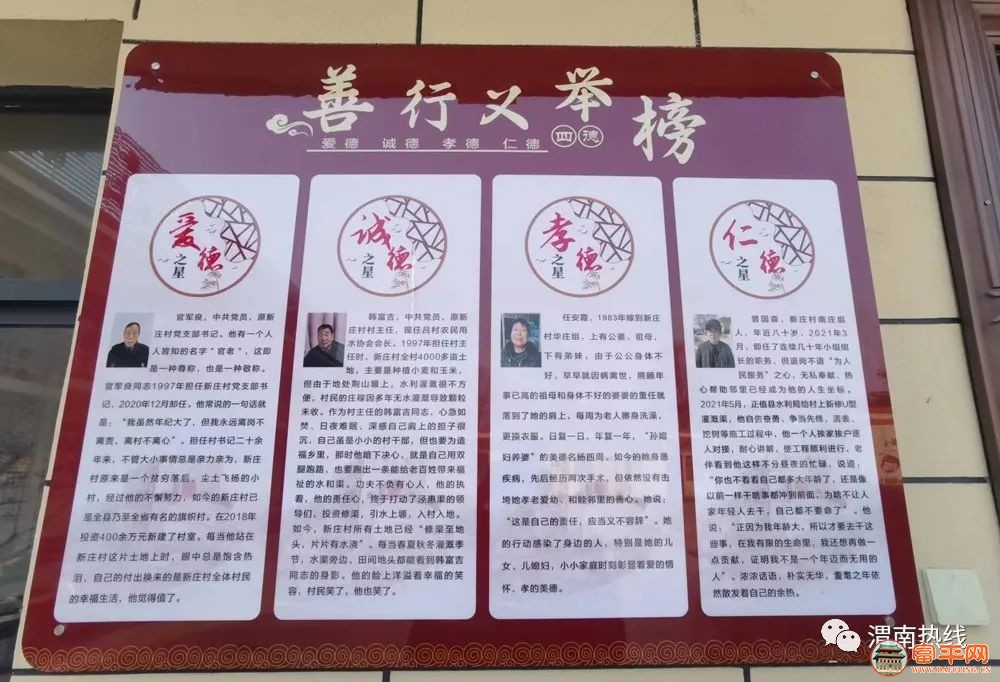 善行义举榜
爱德 诚德 孝德 仁德 四德
爱德之星
官军良，中共党员，原新
庄村党支部书记。他有一个人
人皆知的名字“官老”，这即
是一种尊称，也是一种敬称。
官军良同志1997年担任新庄村党支部书
记，2020年12月卸任。他常说的一句话就
是：“我虽然年纪大了，但我永远离岗不
离责、离村不离心”。担任村书记二十余
年来，不管大小事情总是亲力亲为，新庄
村原来是一个贫穷落后、尘土飞扬的小
村，经过他的不懈努力，如今的新庄村已
是全县乃至全省有名的旗帜村。在2018年
投资400余万元新建了村室。每当他站在
新庄村这片土地上时，眼中总是饱含热
泪，自己的付出换来的是新庄村全体村民
的幸福生活，他觉得值了。
诚德之星
韩富吉，中共党员，原新
庄村村主任，现任吕村农民用
水协会会长。1997年担任村主
任时，新庄村全村4000多亩土
地，主要是种植小麦和玉米，
但由于地处荆山塬上，水利灌溉很不方
便，村民的庄稼因多年无水灌溉导致颗粒
未收。作为村主任的韩富吉同志，心急如
焚、日夜难眠、深感自己肩上的担子很
沉，自己虽是小小的村干部，但也要为造
福乡里，那时他暗下决心，就是自己用双
腿跑路，也要跑出一条能给老百姓带来福
祉的水和渠。功夫不负有心人，他的执
着，他的责任心，终于打动了泾惠渠的领
导们，投资修渠，引水上塬，入村入地。
如今，新庄村所有土地已经“修渠至地
头，片片有水浇”。每当春夏秋冬灌溉季
节，水渠旁边、田间地头都能看到韩富吉
同志的身影。他的脸上洋溢着幸福的笑
容，村民笑了，他也笑了。
孝德之星
任安霞，1983年嫁到新庄
村华庄组，上有公婆、祖母，
下有弟妹，由于公公身体不
好，早早就因病离世，照顾年
事已高的祖母和身体不好的婆婆的重任就
落到了她的肩上，每周为老人擦身洗澡，
更换衣服。日复一日，年复一年，“孙媳
妇养婆”的美德名扬四周。如今的她身患
疾病，先后经历两次手术，但依然没有击
垮她孝老爱幼、和睦邻里的善心。她说：
“这是自己的责任，应当义不容辞”。她
的行动感染了身边的人，特别是她的儿
女、儿媳妇，小小家庭时刻彰显着爱的情
怀、孝的美德。
仁德之星
曾国森，新庄村南庄组
人，年近八十岁，2021年3
月，卸任了连续几十年小组组
长的职务，但退岗不退“为人
民服务”之心，无私奉献、热
心帮助邻里已经成为他的人生坐标。
2021年5月，正值县水利局给村上新修U型
灌溉渠，他自告奋勇、争当先锋，清表、
挖树等施工过程中，他一个人挨家挨户逐
人对接，耐心讲解，使工程顺利进行，老
伴看到他这样不分昼夜的忙碌，说道：
“你也不看看自己都多大年龄了，还是像
以前一样干啥事都冲到前面，为啥不让人
家年轻人去干，自己都不要命了”。他
说：“正因为我年龄大，所以才要去干这
些事，在我有限的生命里，我还想再做一
点贡献，证明我不是一个年迈而无用的
人”。浓浓话语，朴实无华，耄耋之年依
然散发着自己的余热。
渭南热线
富平网